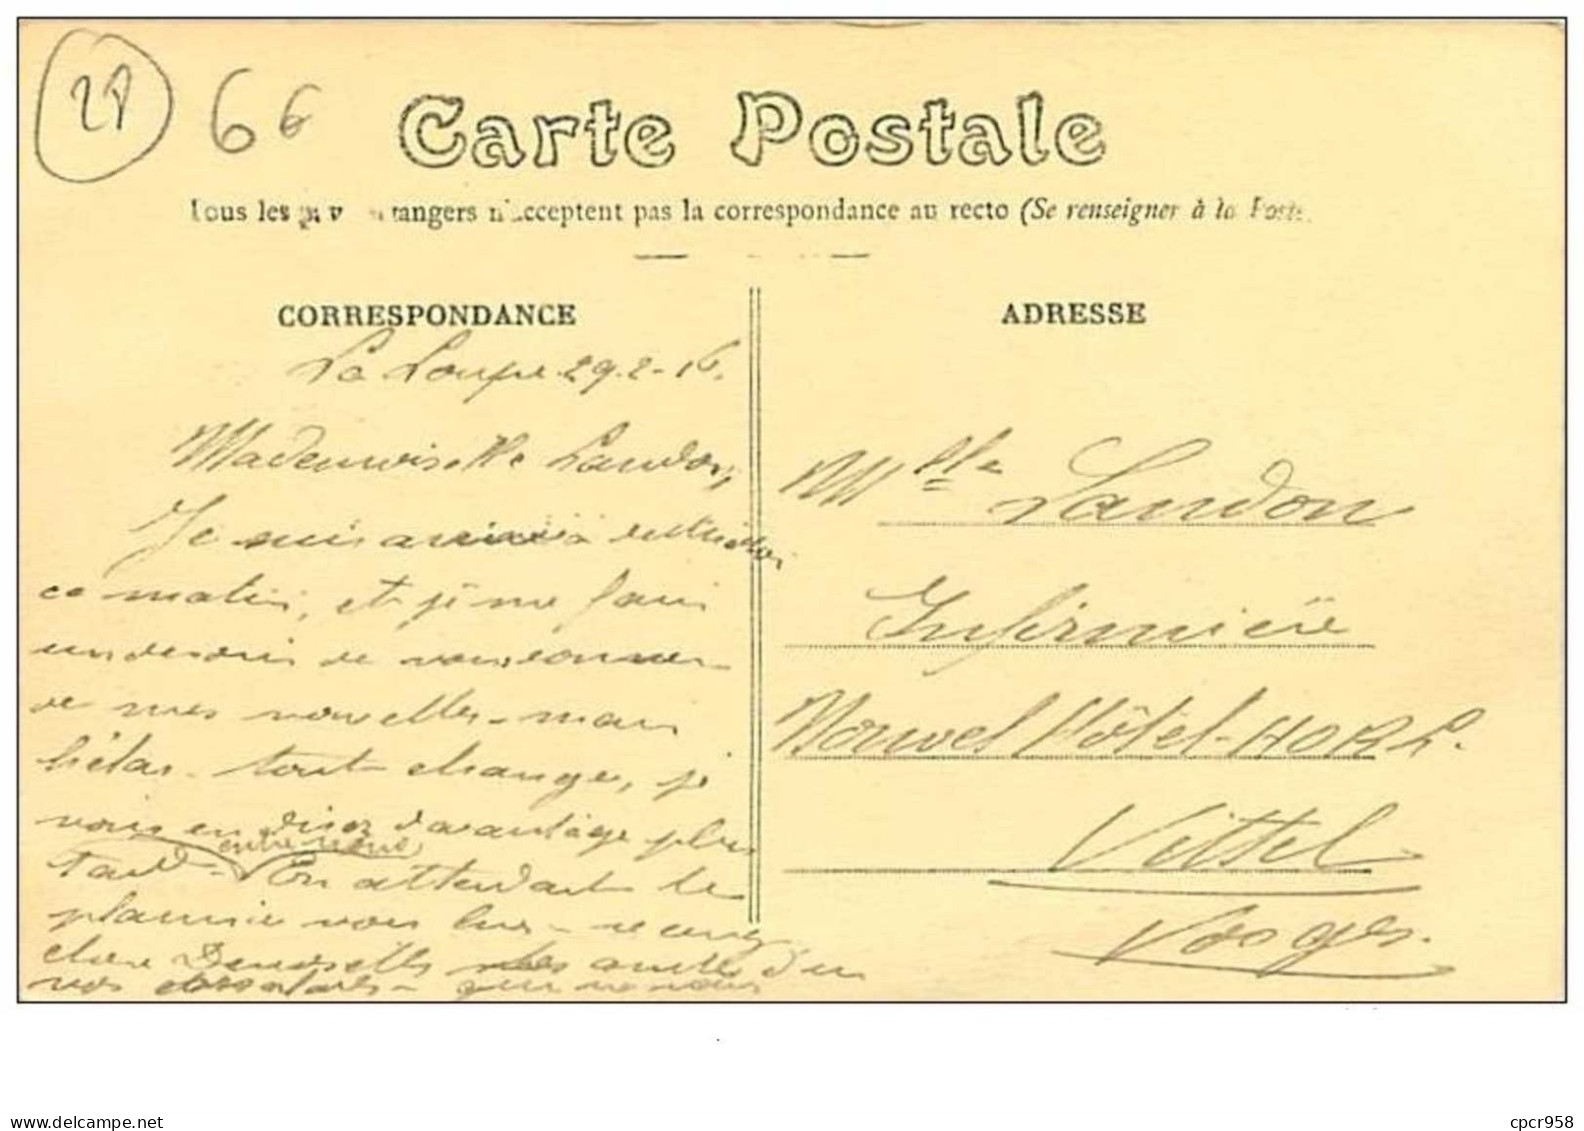 21 66
Carte Postale
Tous les pays étrangers n'acceptent pas la correspondance au recto (Se renseigner à la Poste)
CORRESPONDANCE
ADRESSE
La Loupe 29.2.16.
Mademoiselle Landon,
Je suis arrivé à
ce matin, et je me fais
un devoir de vous donner
de mes nouvelles - mais
hélas - tout change, je
vous en disez davantage plus
entre nous
tard - En attendant le
plaisir vous lire - recevez
chère Demoiselle les amitiés d'un
de vos - que
Mlle Landon
Infirmière
Nouvel Hôtel - HORL.
Vittel
Vosges.
www.delcampe.net
cpcr958